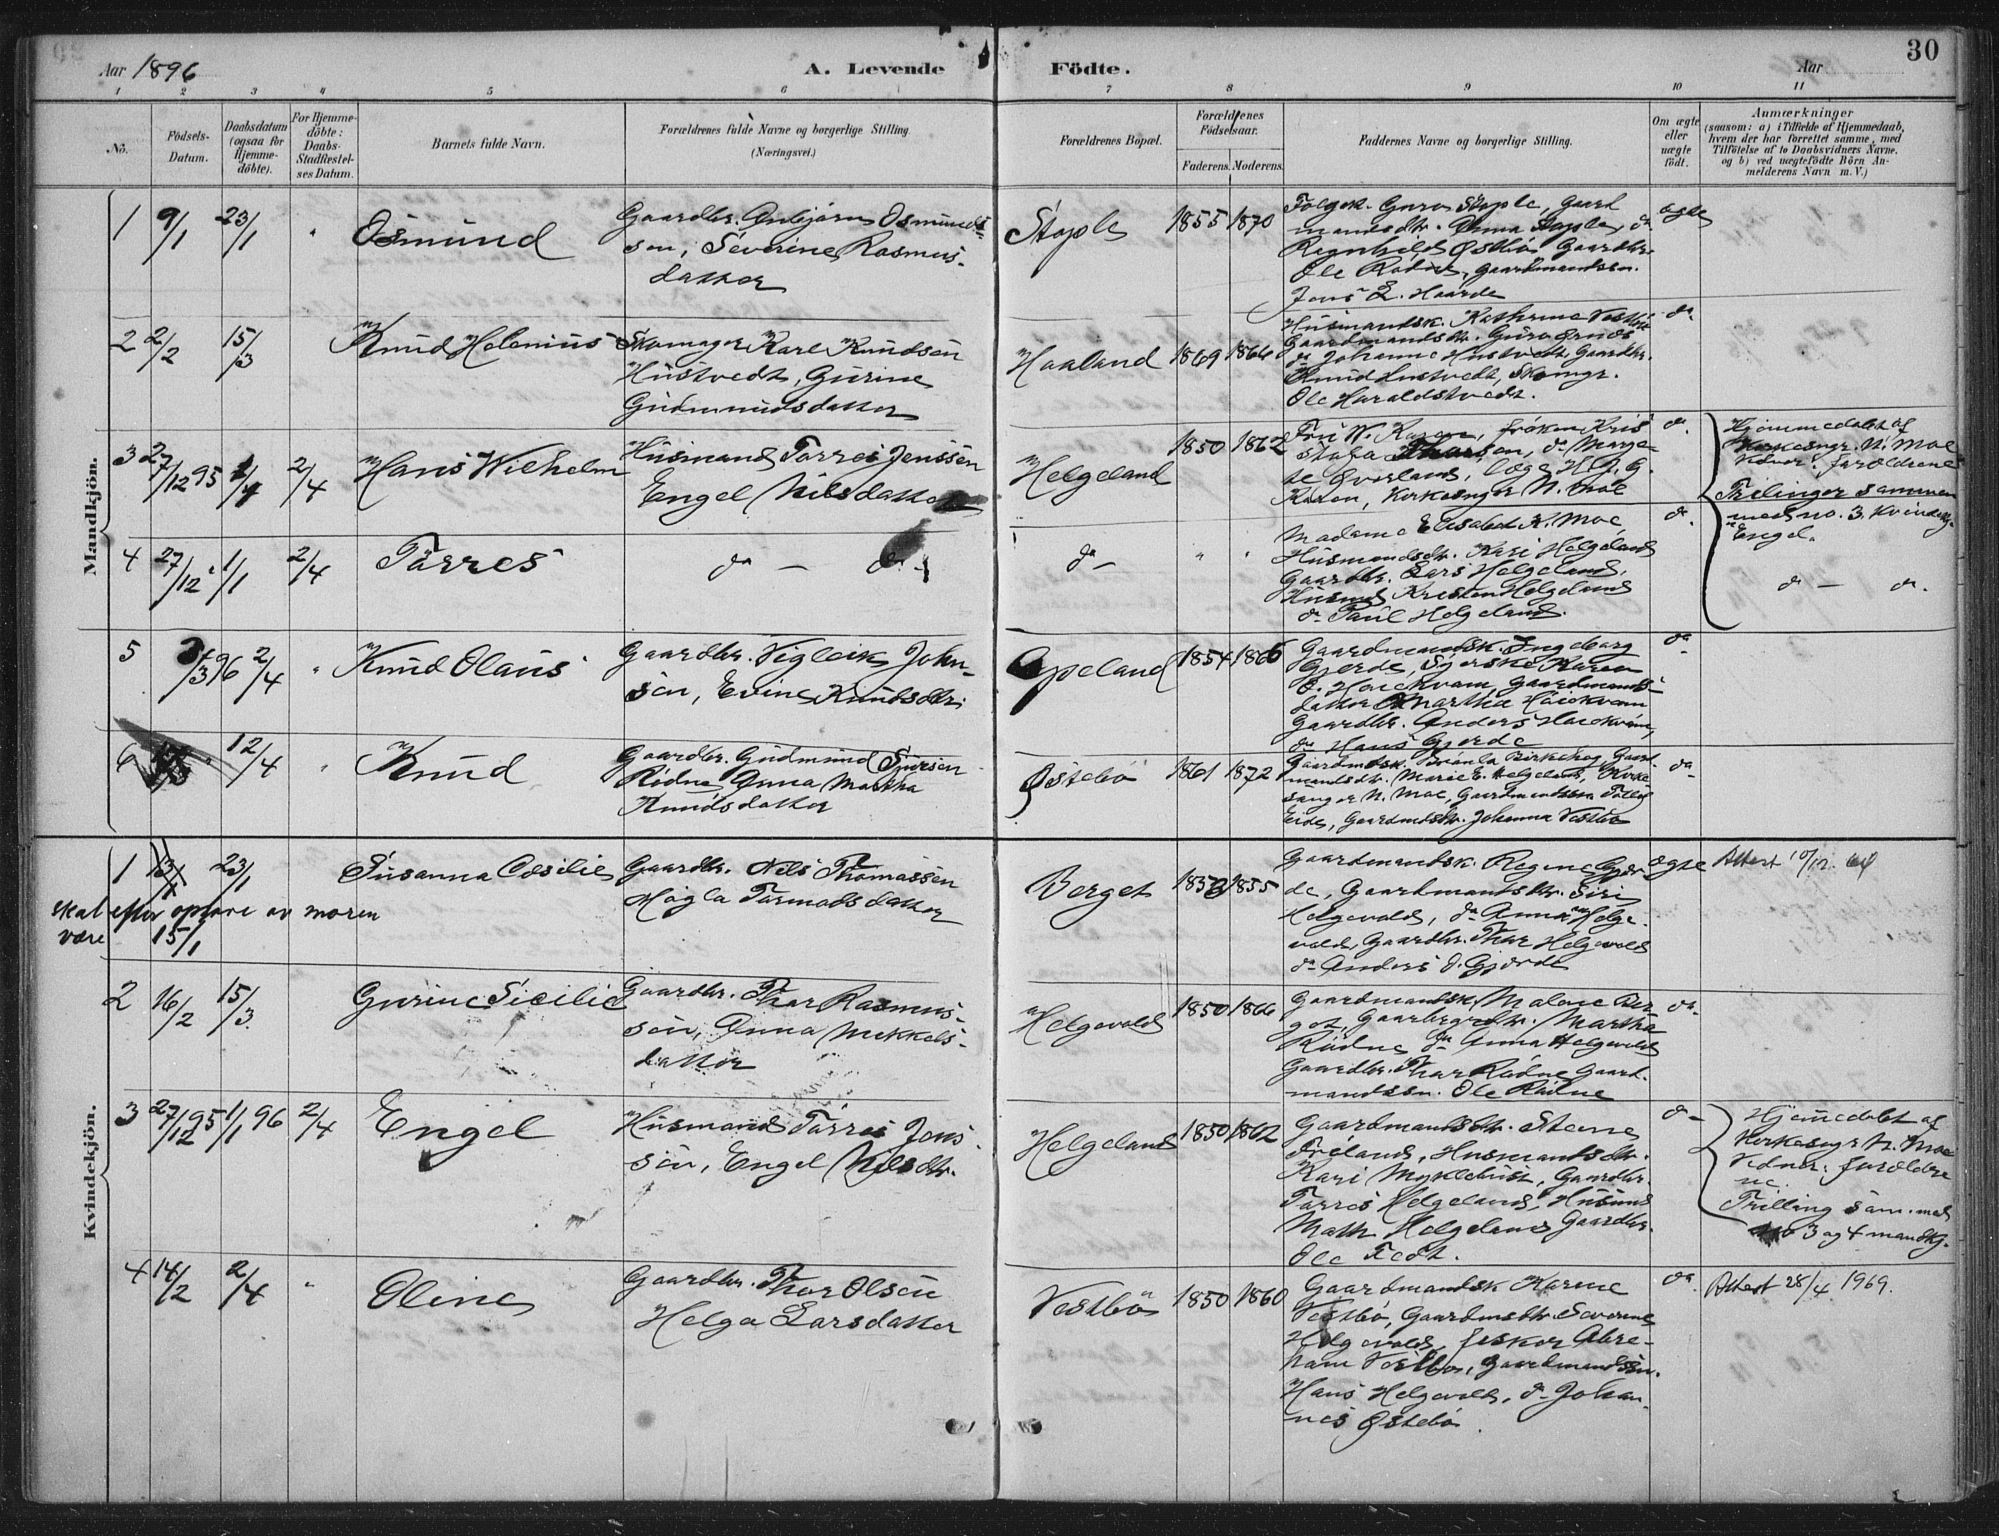 Aar 1896
A. Levende
Födte.
Aar
30
1 2 3 4 5 6 7 8 9 10 11
No.
Födsels-
Datum.
Daabsdatum
(ogsaa for
Hjemme-
döbte).
For Hjemme-
döbte:
Daabs-
Stadfæstel-
ses Datum.
Barnets fulde Navn.
Forældrenes fulde Navne og borgerlige Stilling.
(Næringsvei.)
Forældrenes Bopæl.
Forældrenes
Födselsaar.
Faderens. Moderens.
Faddernes Navne og borgerlige Stilling.
Om ægte
eller
uægte
födt.
Anmærkninger
(saasom: a) i Tilfælde af Hjemmedaab,
hvem der har forrettet samme, med
Tilföielse af to Daabsvidners Navne.
og b) ved uægtefödte Börn An-
melderens Navn m. V.)
Mandkjön.
1 9/1 23/1 " Osmund
Gaardbr. Anbjörn Osmund-
sen, Severine Rasmus-
datter
Stople 1855 1870
Folgek. Guro Stople, Gaard
mandsdtr. Anna Stople, do
Ragnhild Østbö Gaardbr.
Ole Rödne, gaardmandssön.
Jens L. Haarde
ægte
2 2/2 15/3 Knud Helenius
Skomager Karl Knudsen
Hustvedt, Gurine
Gudmundsdatter
Haaland 1869 1866
Husmandsk. Kathrine Vestbö
Gaardmandsdtr. Guro
do Johanne Hustvedt Gaardbr.
Knud Hustvedt, Skomgr.
Ole Haraldstvedt.
do
3 27/12 95 1/1 2/4 Hans Wilhelm
Husmand Törres Jenssen
Engel Nilsdatter
Helgeland 1850 1862
Fru W. Karen, fröken Kris
do Marge-
te Læge H. J. G.
Kirkesngr N. Moe
do
Hjemmedøbt af
Kirkesngr. N. Moe
Vidner: forældrene
Trilinger sammen
med no. 3 Kvindekj.
Engel.
4 27/12 1/1 2/4 Törres
do — do
do — " "
Madame Elisabet K. Moe
Husmandsdtr. Kari Helgeland
Gaardbr. Lars Helgeland,
Husmd Kristen Helgeland
do Paul Helgeland.
do
do — do
5 3/3 96 2/4 " Knud Olaus
Gaardbr. Vigleik John-
sen, Evine Knudsdtr.
Opeland 1854 1866
Gaardmandsk. Ingeborg
Gjerde, Karen
O. Hauekvam, Gaardmands-
datter Martha Hauekvam
Gaardbr. Anders Hauekvam,
do Hans Gjerde
do
6 12/4 " Knud
Gaardbr. Gudmund Sjursen
Rödne Anna Martha
Knudsdatter
Østebö 1861 1872
Gaardmdsk. Birkeland, Gaard-
mandsdtr. Marie E. Helgeland, Kirke
sanger N. Moe, Gaardmandssön
Eide, Gaardmdsdtr. Johanna Vestbö
do
Kvindekjön.
1 13/1 23/1 Susanna Cæsilie
Gaardbr. Nils Thomassen
Magla Tormodsdatter
skal efter opgave av moren
være 15/1
Berget 1853 1855
Gaardmandsk. Regine Gjer
de, Gaardmandsdtr. Siri
Helgevold, do Anna Helge-
vold, Gaardbr. Thor Helgevold
do Anders O. Gjerde
ægte
Attest 10/12
2 16/2 15/3 Gurine Sicilie
Gaardbr. Thor Rasmus-
sen, Anna Mikkels-
datter
Helgevold 1850 1866
Gaardmandsk. Malene Ber
get, Martha
Rödne do Anna Helgevold
Gaardbr. Thor Rödne Gaard-
mandssn. Ole Rödne
do
3 27/12 95 1/1 96 2/4 Engel
Husmand Törres Jens
sen, Engel Nilsdtr.
Helgeland 1850 1862
Gaardmandsdtr. Stene
Husmandsdtr.
Kari Myklebust, Gaardbr.
Törres Helgeland, Husmd
Math. Helgeland Gaardbr.
Ole Tedt.
do —
Hjemmedøbt af
Kirkesngr N. Moe
Vidner: foreldre
ne.
Trilling sam. med
No 3 og 4 mandkj.
4 14/2 2/4 " Oline
Gaardbr. Thor Olsen
Helga Larsdatter
Vestbö 1850 1860
Gaardmandsk Karine
Vestbö, Gaardmdsdtr Severine
Helgevold, fisker Abra-
ham Vestbö, Gaardmandssn.
Hans Helgevold, do Johan-
nes Østebö
do
Attest 28/4 1969.